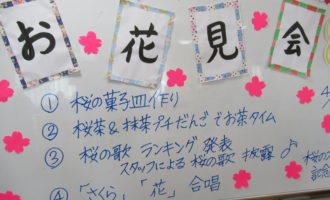 お花見会
① 桜の菓子皿作り
② 桜茶&抹茶プチだんごでお茶タイム
③ 桜の歌 ランキング 発表
スタッフによる 桜の歌 披露♪
④ 「さくら」 「花」 合唱
4
桜の
記念